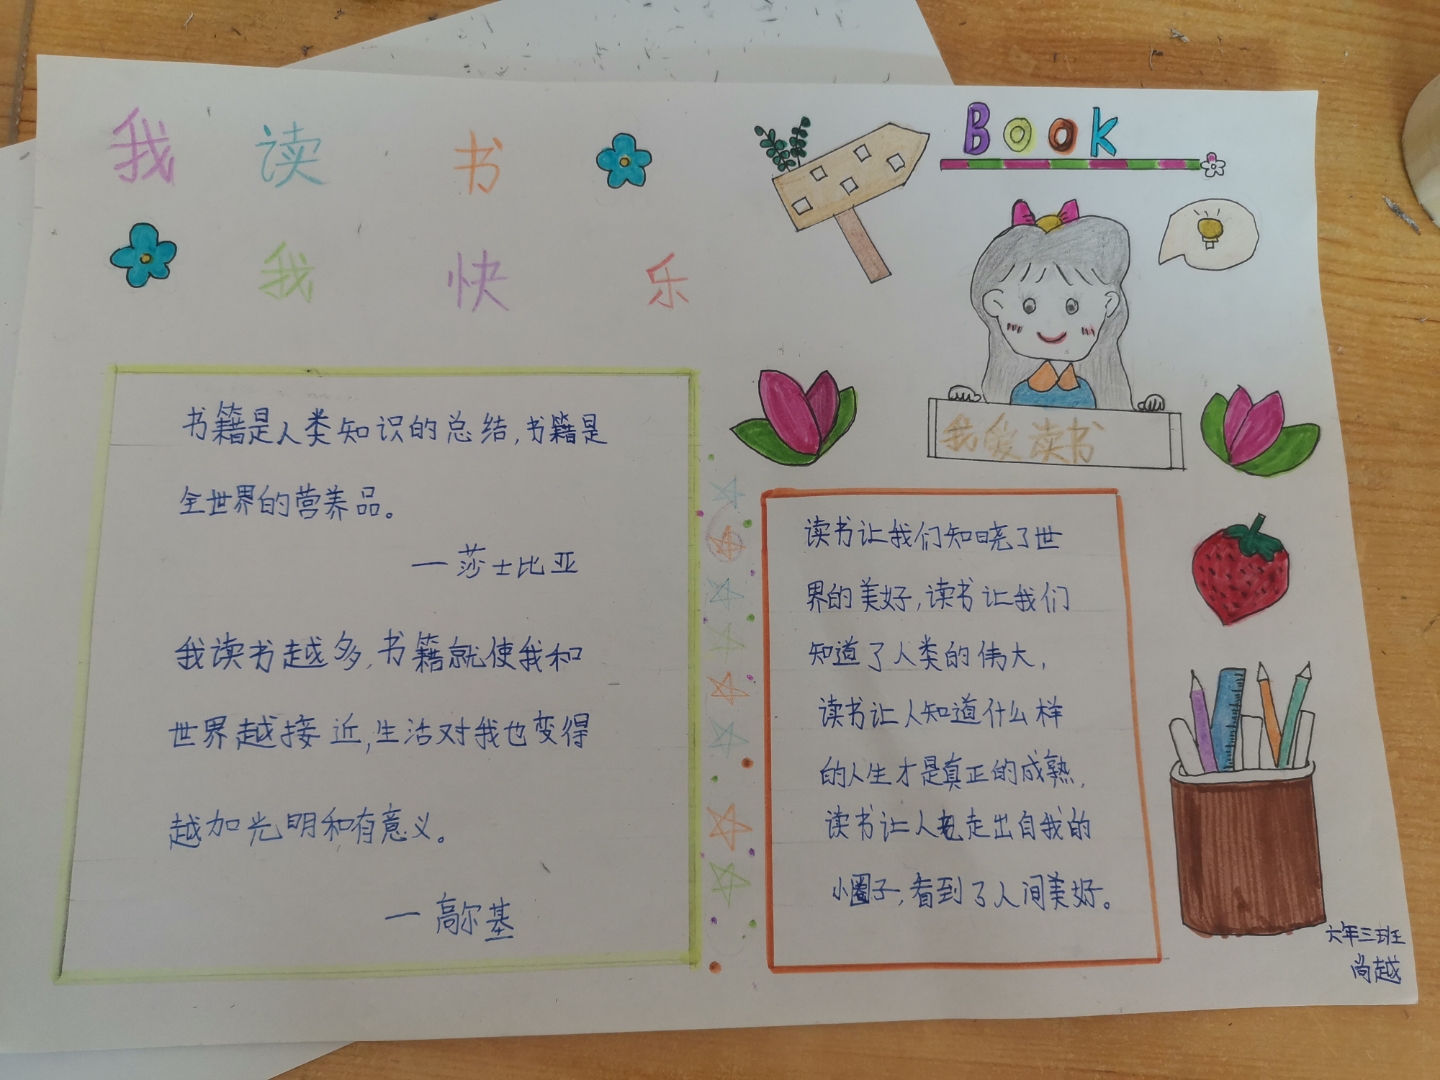 我读书
我快乐
BOOK
我爱读书
书籍是人类知识的总结,书籍是
全世界的营养品。
—莎士比亚
我读书越多,书籍就使我和
世界越接近,生活对我也变得
越加光明和有意义。
—高尔基
读书让我们知晓了世
界的美好,读书让我们
知道了人类的伟大,
读书让人知道什么样
的人生才是真正的成熟,
读书让人走出自我的
小圈子,看到了人间美好。
六年三班
尚越